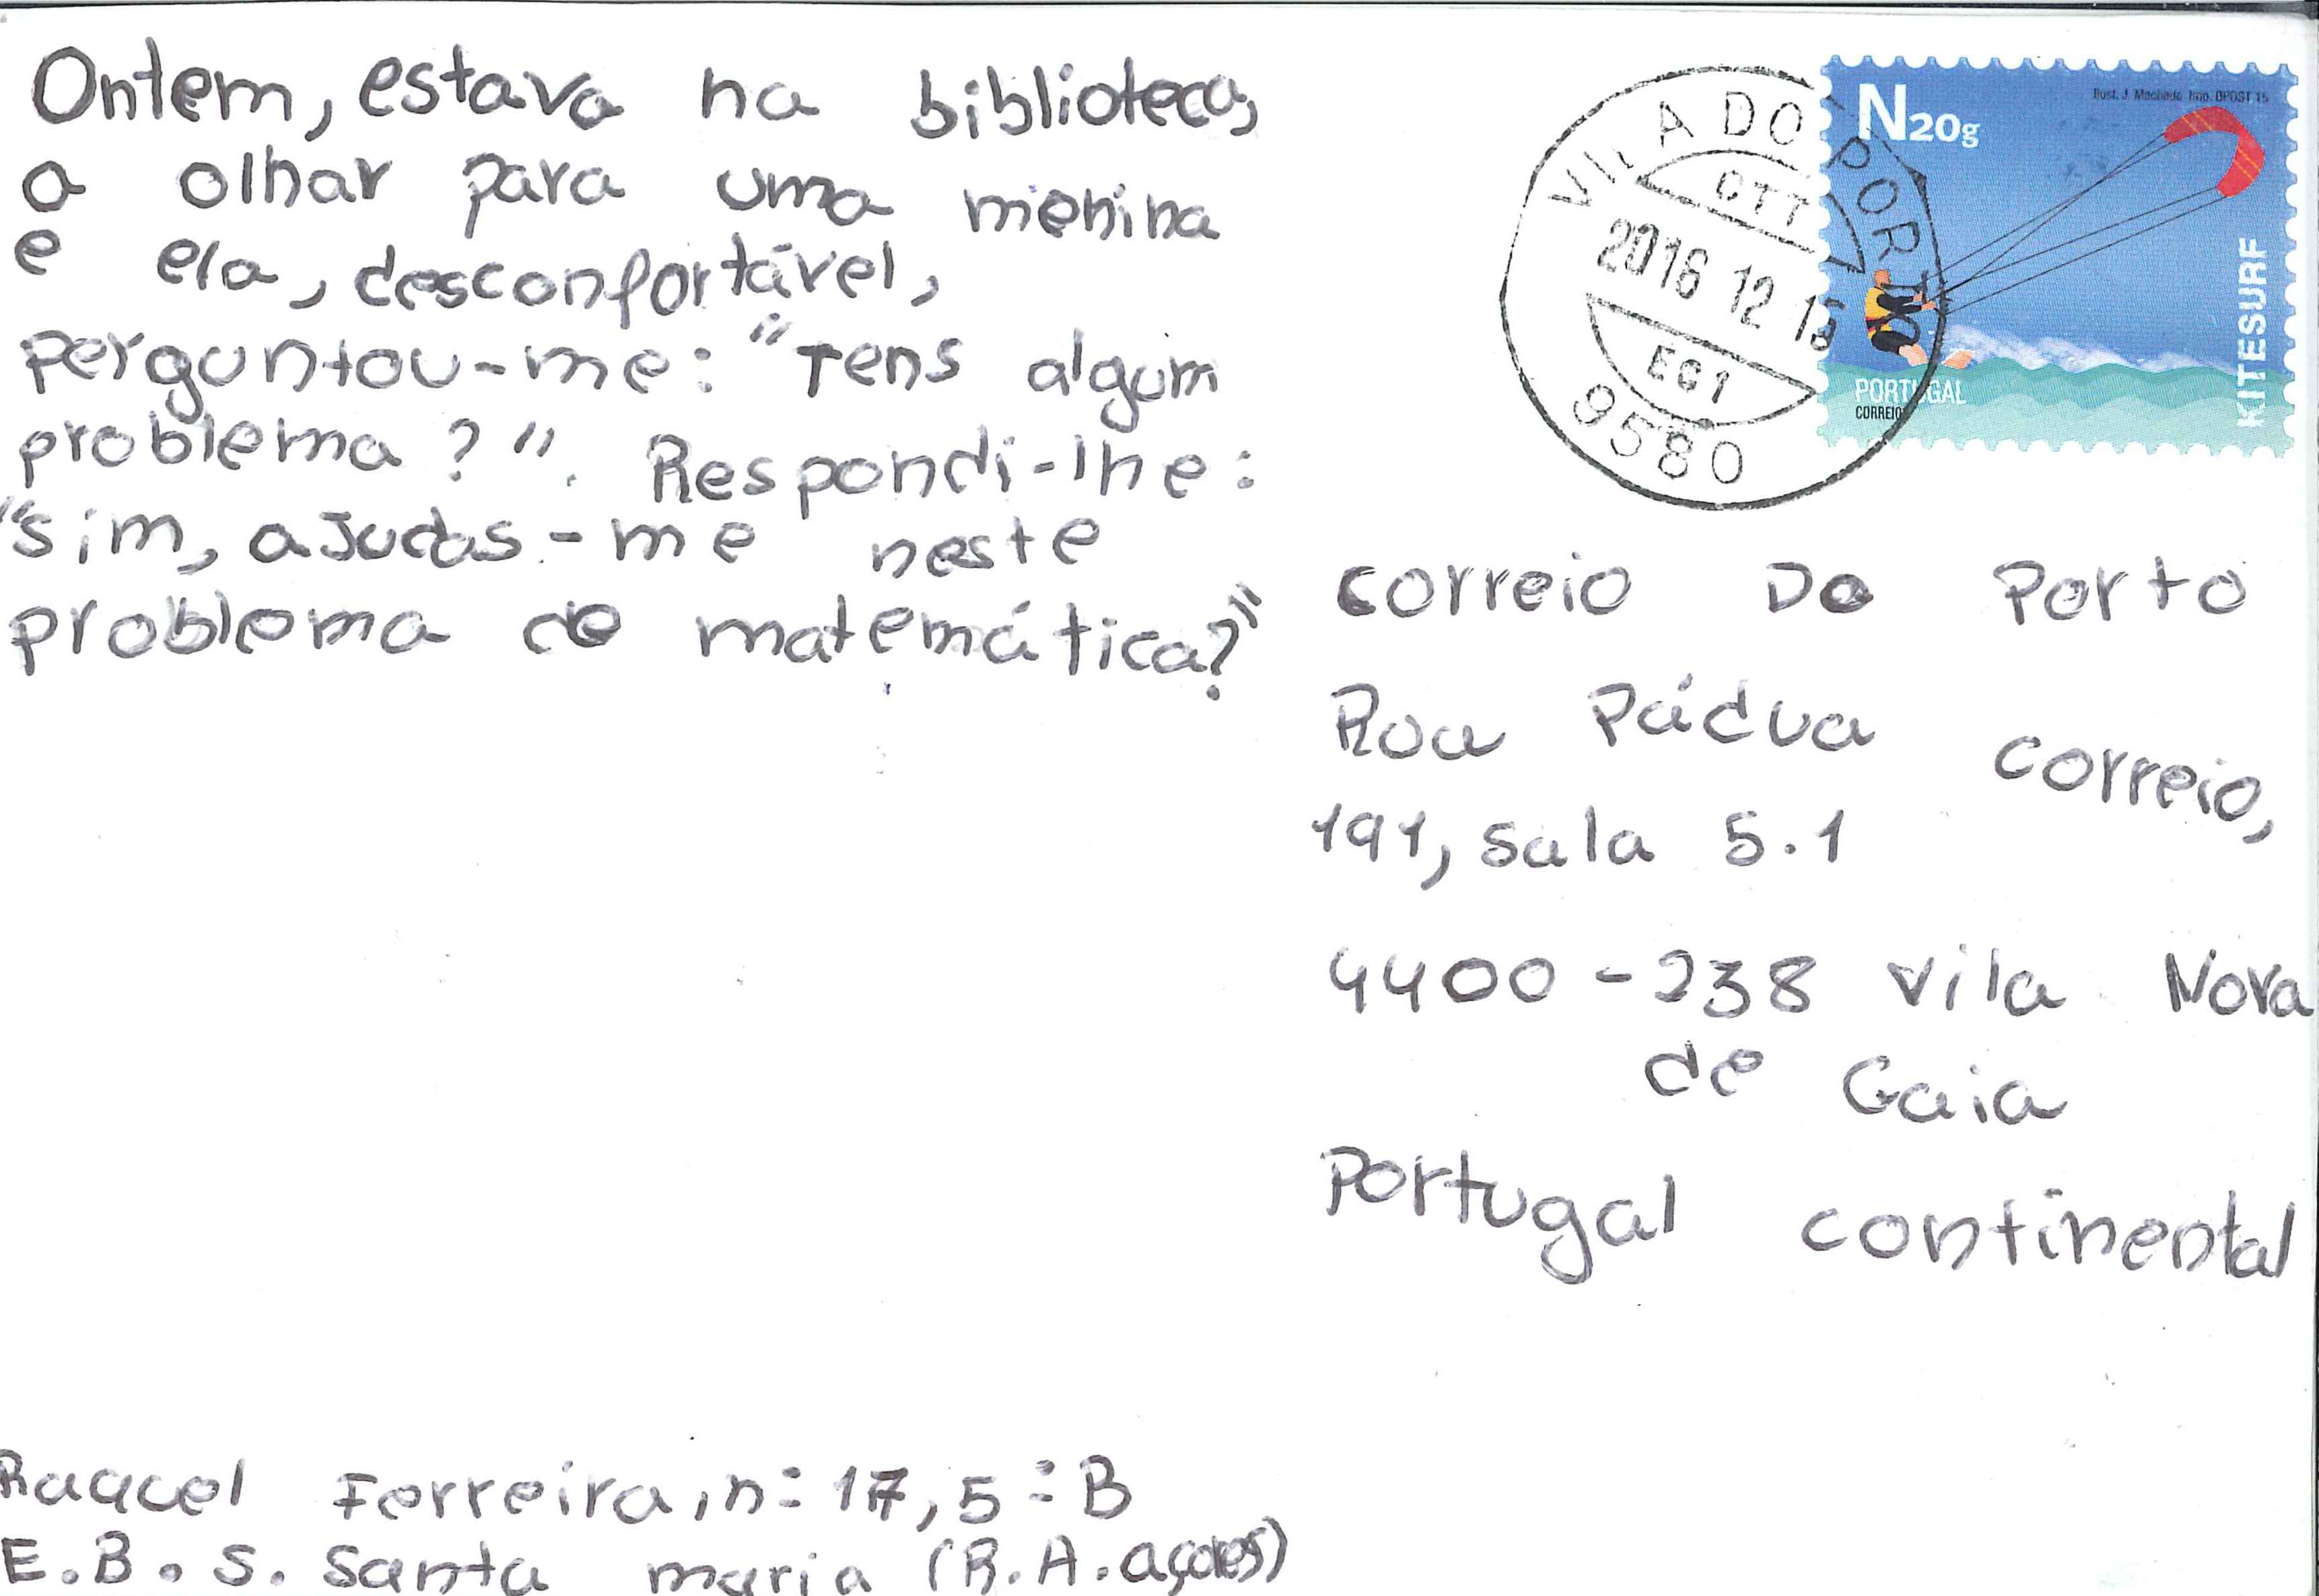 Ontem, estava na biblioteca,
a olhar para uma menina
e ela, desconfortável,
perguntou-me: "Tens algum
problema?". Respondi-lhe:
"sim, ajudas-me neste
problema de matemática?"
Raquel Ferreira, nº 17, 5º B
E.B.S. Santa maria (R.A.açores)
N20g
Ilust. J. Machado Imp. BPOST 15
KITESURF
PORTUGAL
CORREIO
VILA DO PORTO
CTT
2016 12 15
EC1
9580
correio Do Porto
Rua Pádua correio,
191, sala 5.1
4400-238 vila Nova
de Gaia
Portugal continental